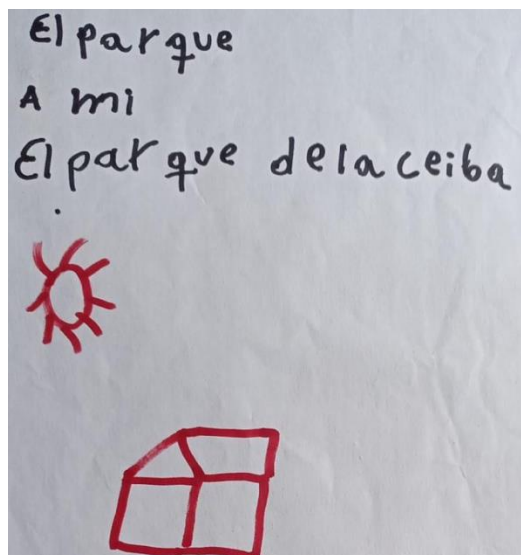 El parque
A mi
El parque dela ceiba